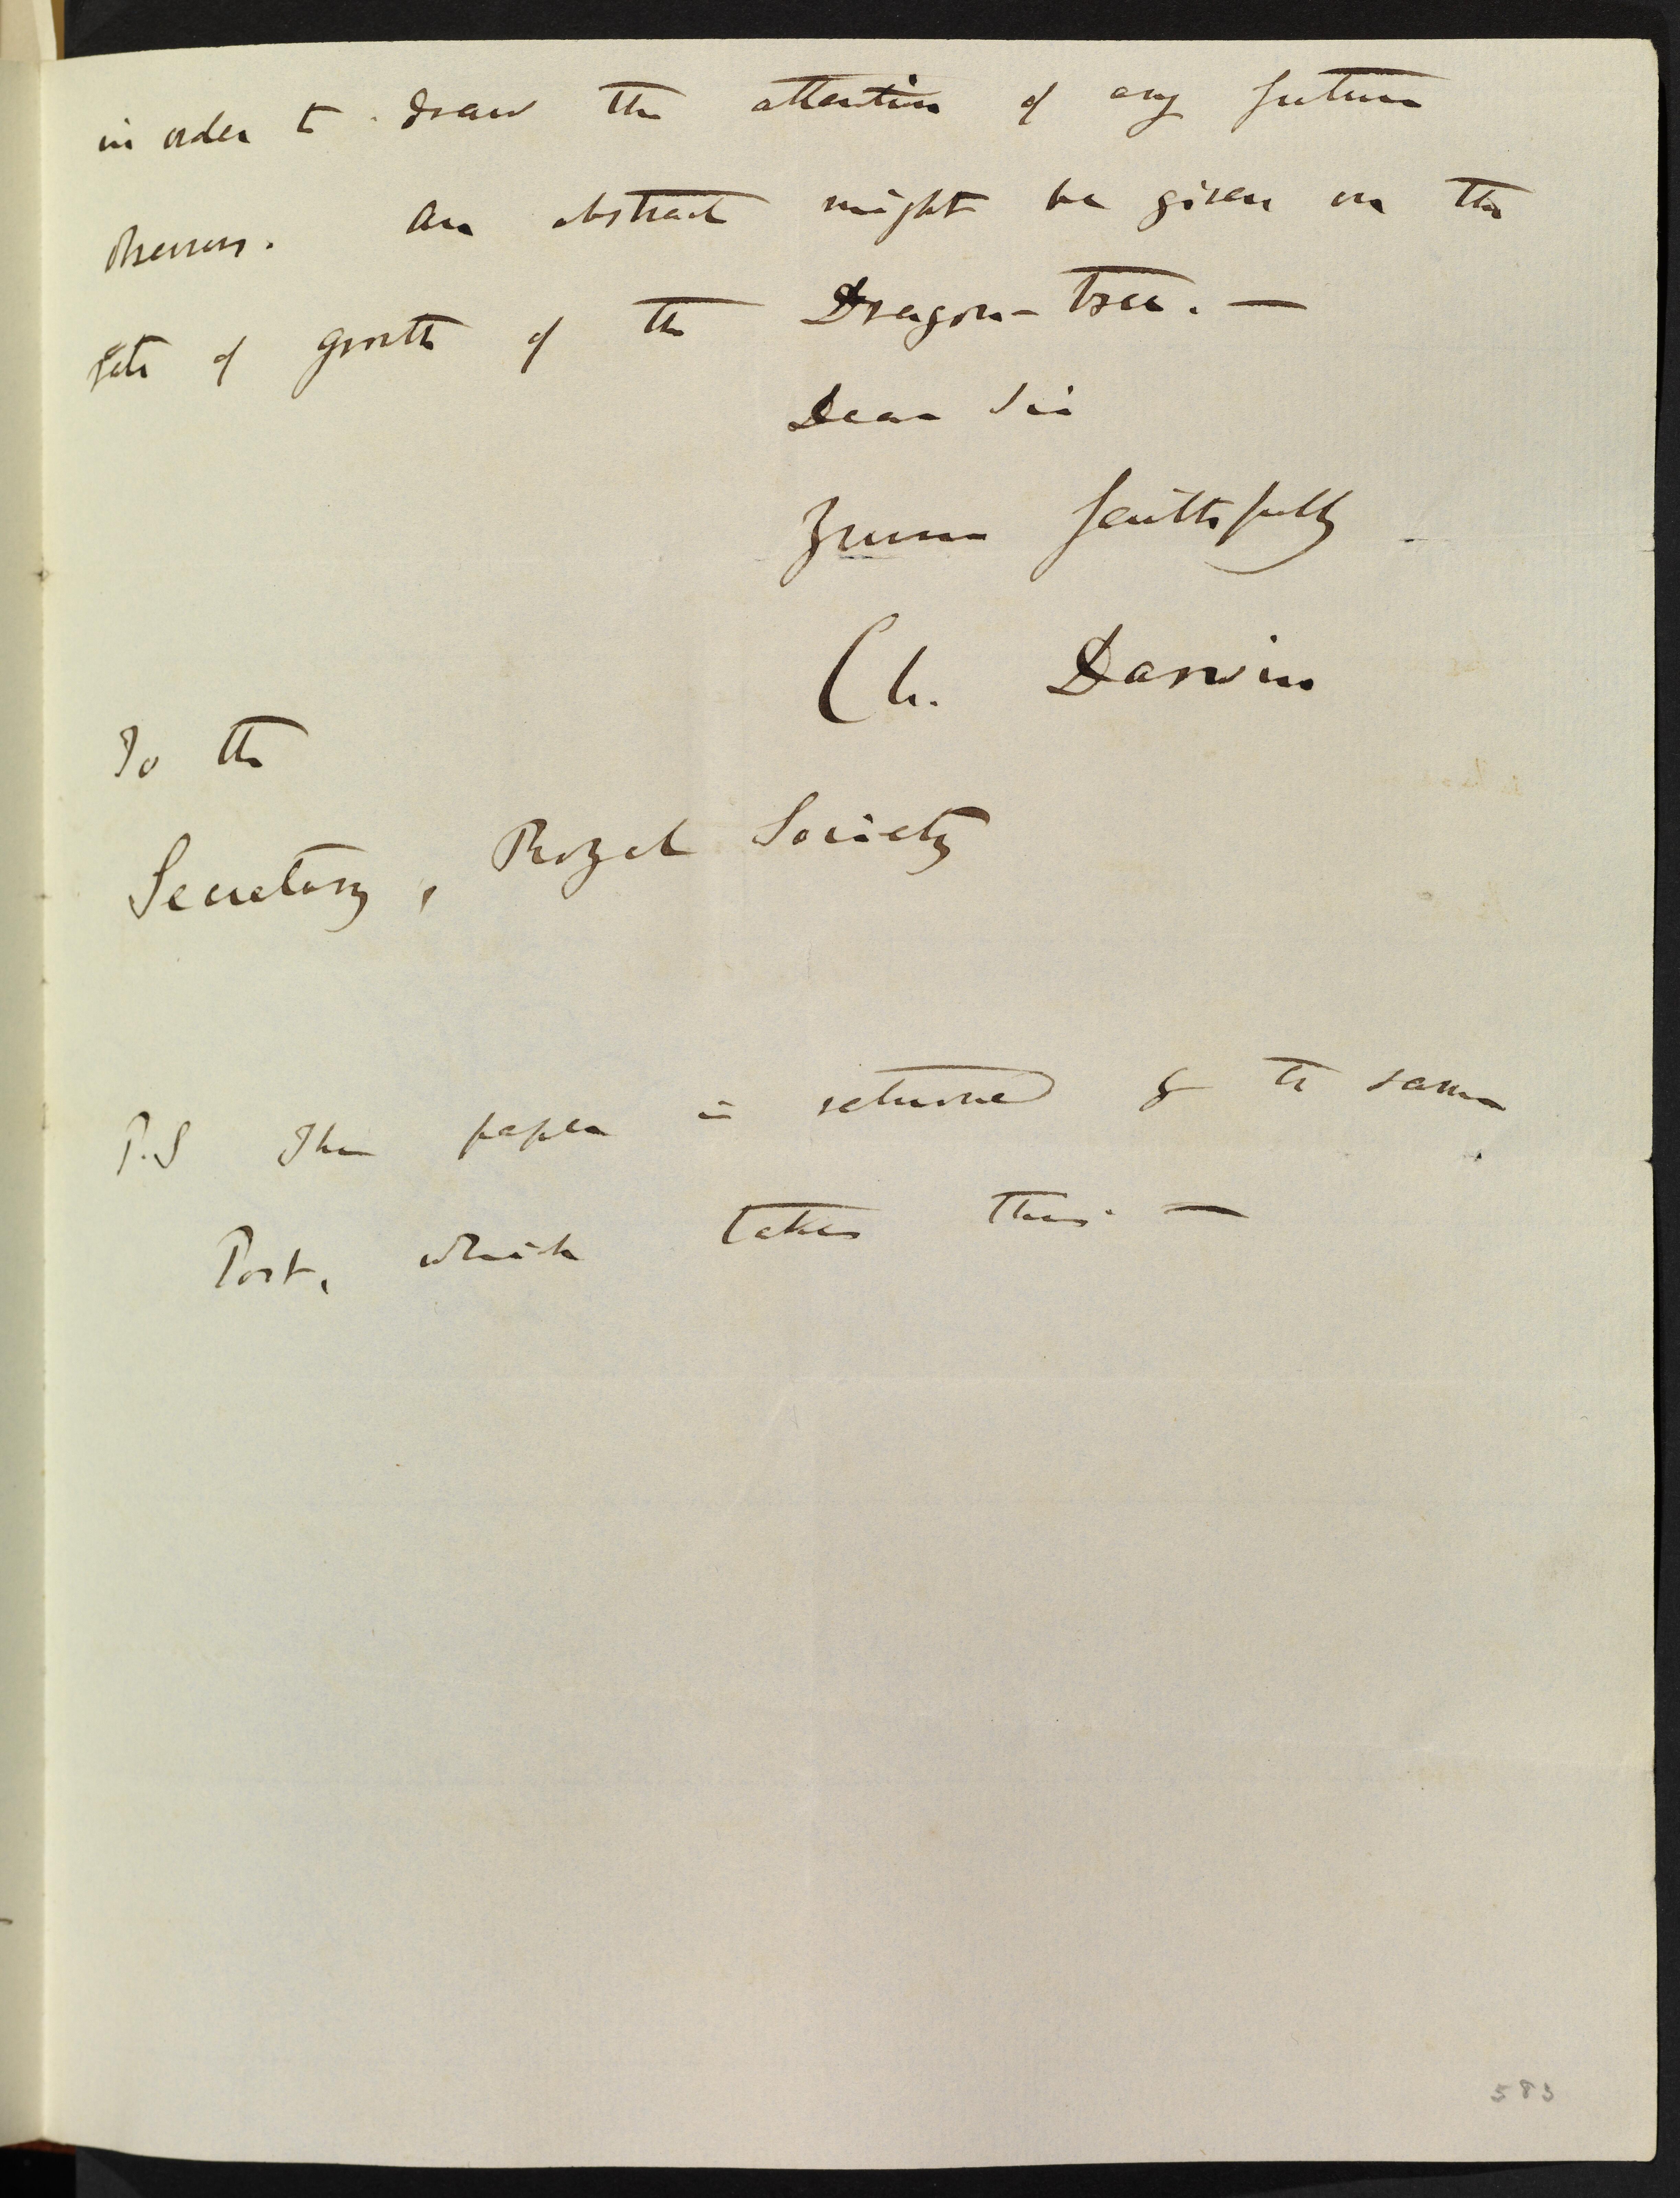 in order to draw the attention of any future
observers. An abstract might be given on the
rate of growth of the Dragon-tree. —
Dear Sir
Yours faithfully
Ch. Darwin
To the
Secretary, Royal Society
P.S The paper is returned by the same
Post, which takes this. —
583